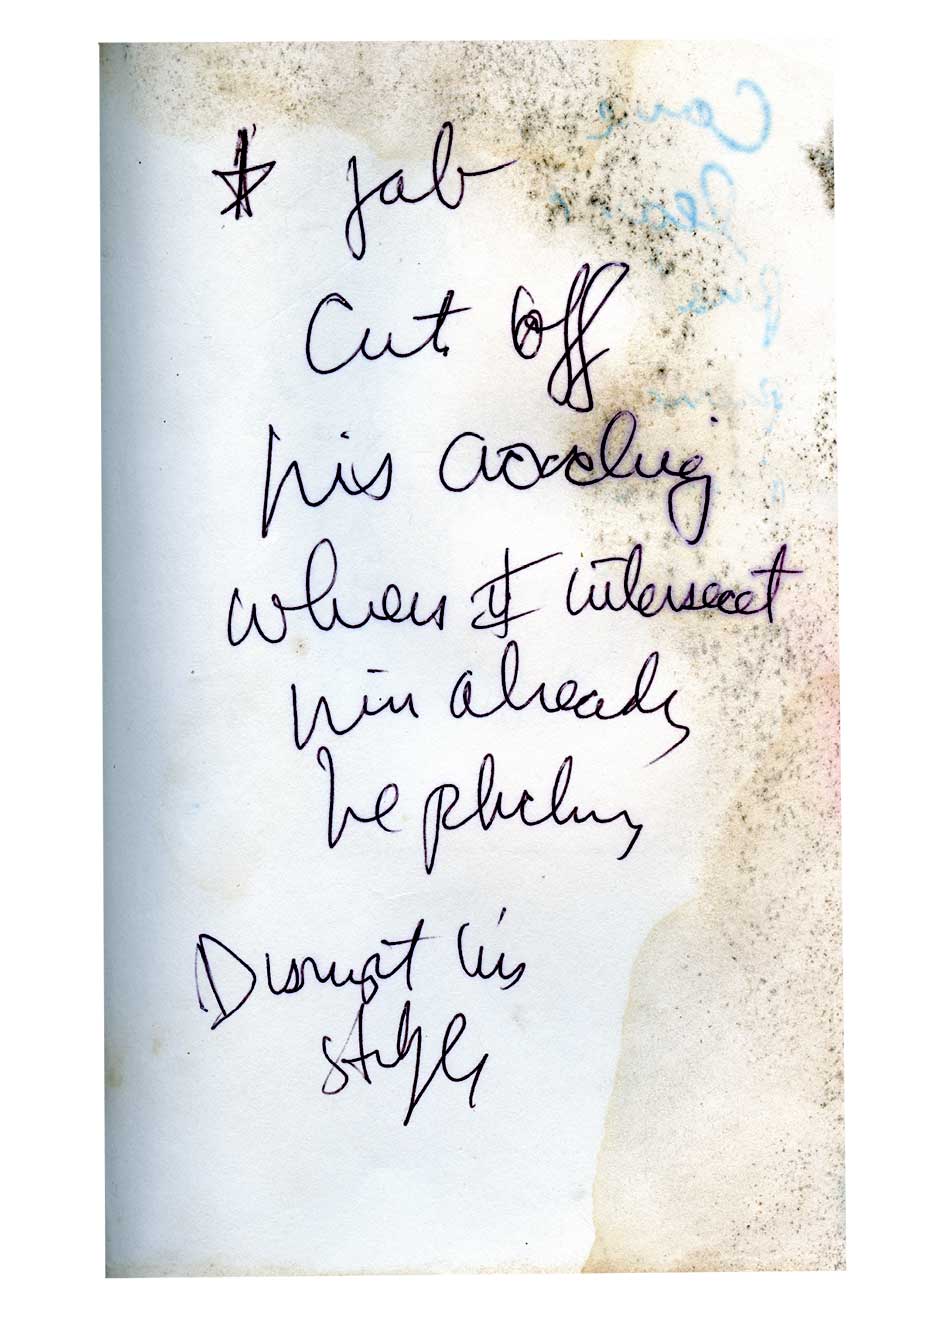 jab
Cut off
his
when I intersect
him already
he
Disrupt his
style